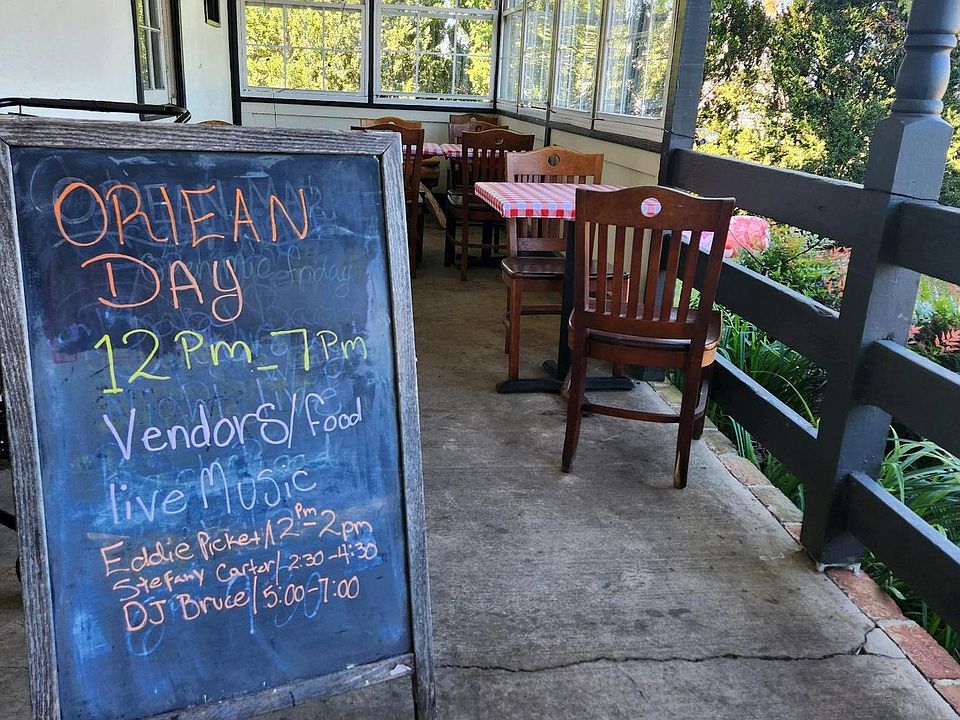 ORIEAN
DAY
12 Pm - 7 Pm
Vendors/food
live Music
Eddie Picket/12Pm-2pm
Stefany Carter/2:30-4:30
DJ Bruce/5:00-7:00